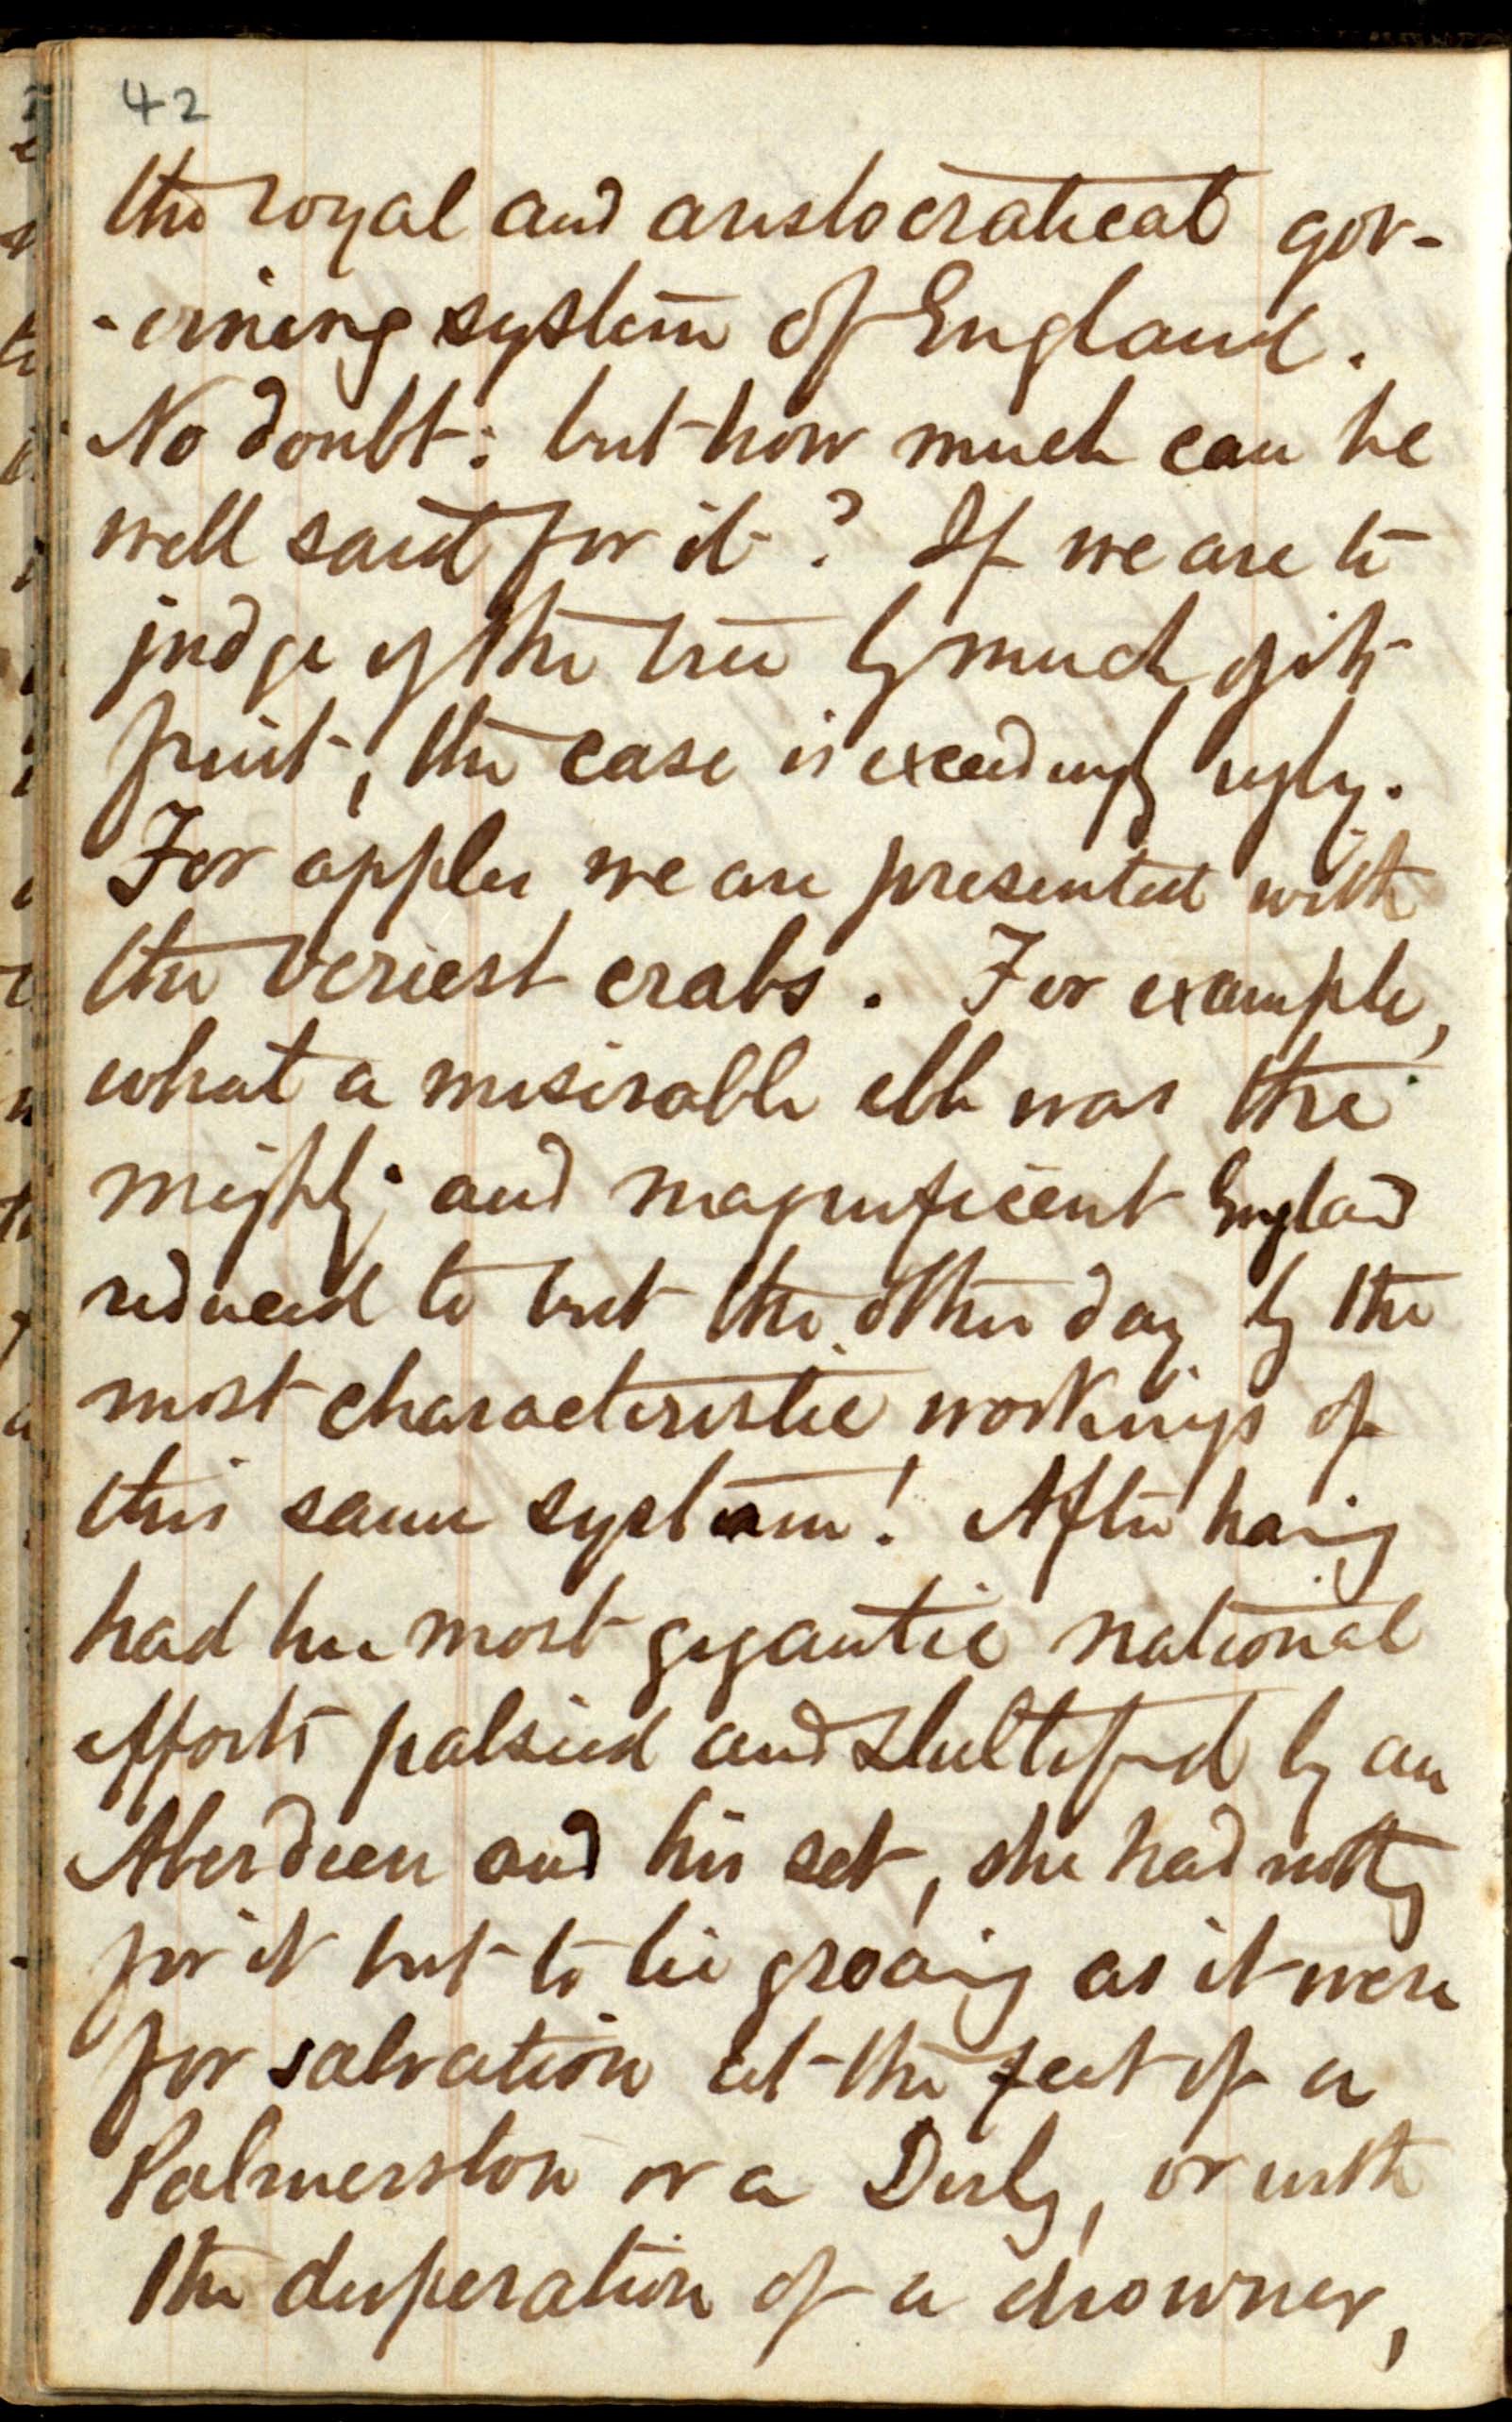 42
the royal and aristocratical gov-
-erning system of England.
No doubt: but how much can be
well said for it? If we are to
judge of the tree by much of its
fruit, the case is exceedingly ugly.
For apples we are presented with
the veriest crabs. For example,
what a miserable ebb was the
mighty and magnificent England
reduced to but the other day by the
most characteristic workings of
this same system! After having
had her most gigantic national
efforts palsied and stultified by an
Aberdeen and his set, she had nothing
for it but to lie groaning as it were
for salvation at the feet of a
Palmerston or a Derby, or with
the desperation of a drowner,